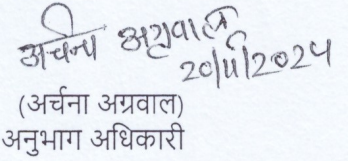 अर्चना अग्रवाल
20/11/2024
(अर्चना अग्रवाल)
अनुभाग अधिकारी